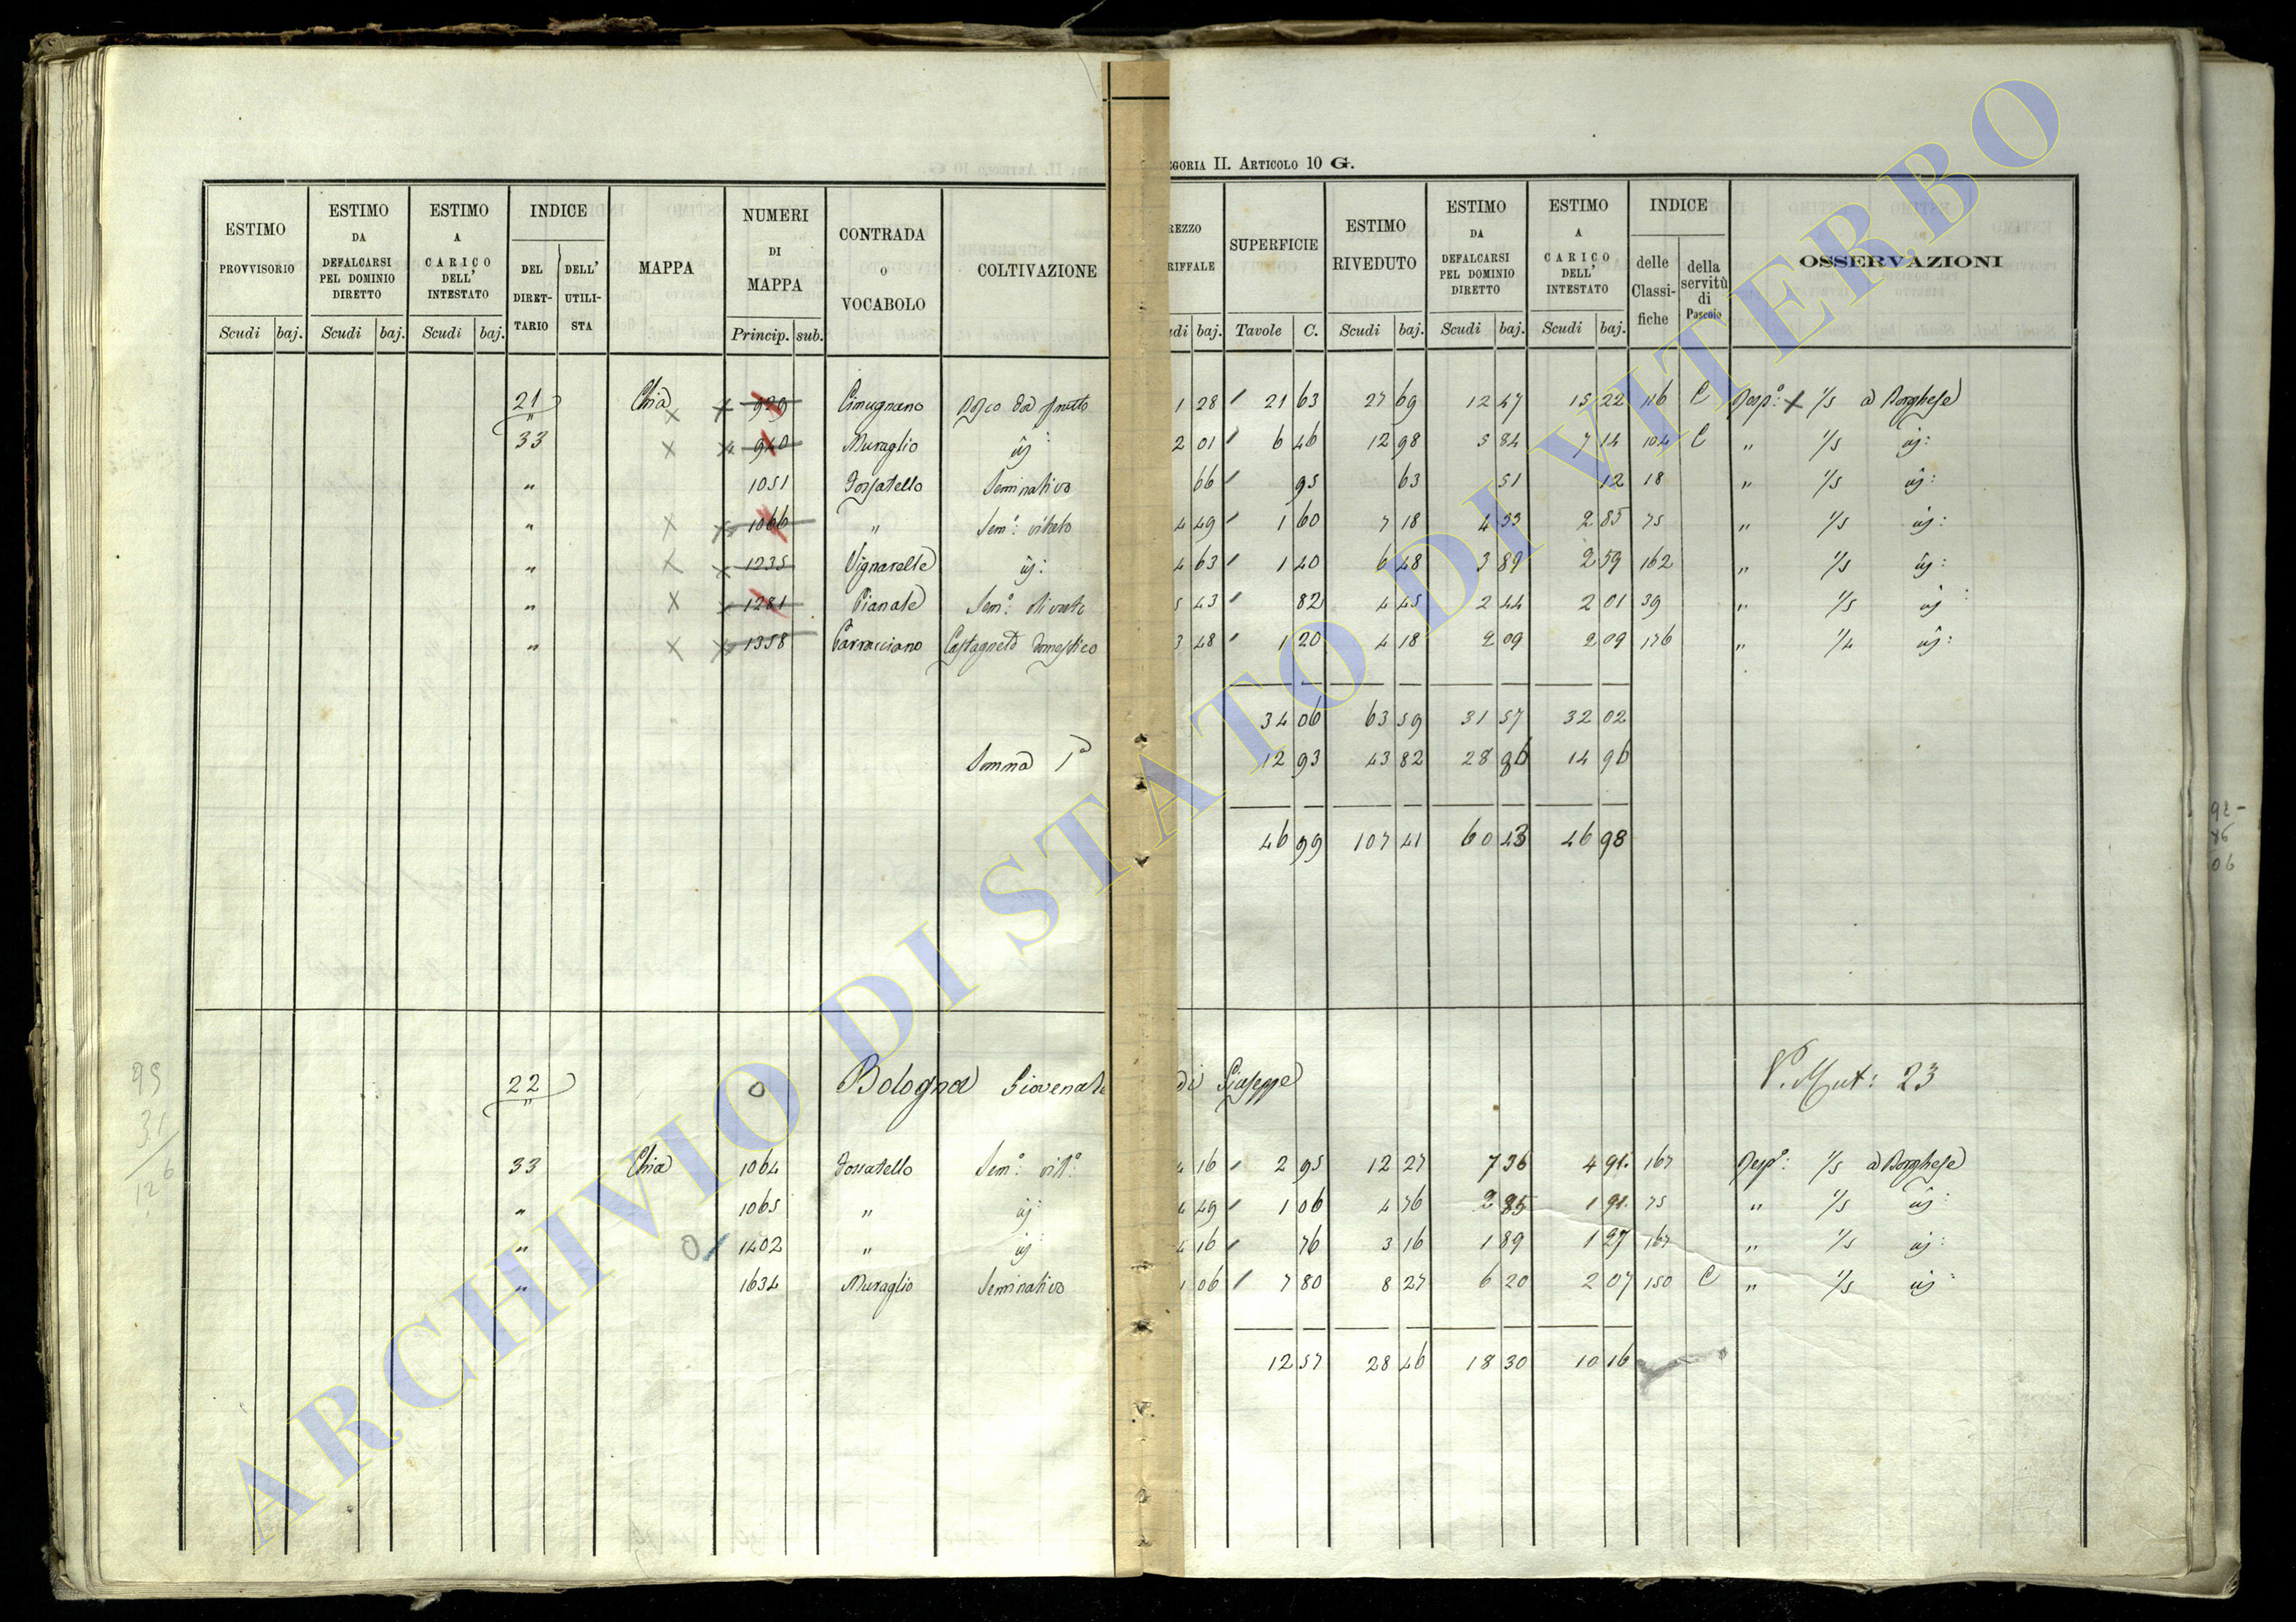 EGORIA II. ARTICOLO 10 G.
ESTIMO PROVVISORIO | ESTIMO DA DEFALCARSI PEL DOMINIO DIRETTO | ESTIMO A CARICO DELL' INTESTATO | INDICE | MAPPA | NUMERI DI MAPPA | CONTRADA O VOCABOLO | COLTIVAZIONE | REZZO RIFFALE | SUPERFICIE | ESTIMO RIVEDUTO | ESTIMO DA DEFALCARSI PEL DOMINIO DIRETTO | ESTIMO A CARICO DELL' INTESTATO | INDICE | OSSERVAZIONI
DEL DIRETTARIO | DELL' UTILISTA | delle Classifiche | della servitù di Pascolo
Scudi | baj. | Scudi | baj. | Scudi | baj. | Princip. | sub. | udi | baj. | Tavole | C. | Scudi | baj. | Scudi | baj. | Scudi | baj.
21 Chia × × 929 Cimugnano Bosco da frutto 1 28 21 63 27 69 12 47 15 22 116 C Resp: × 1/5 a Borghese
33 × × 940 Muraglio 2 01 6 46 12 98 5 84 7 14 104 C " 1/5
" 1051 Fossatello Seminativo 66 95 63 51 12 18 " 1/5
" × × 1066 " Sem: vitato 4 49 1 60 7 18 4 33 2 85 75 " 1/5
" × × 1235 Vignarelle 4 63 1 40 6 48 3 89 2 59 162 " 1/5
" × × 1281 Pianale Sem: olivato 5 43 82 4 45 2 44 2 01 39 " 1/5
" × × 1358 Carracciano Castagneto domestico 3 48 1 20 4 18 2 09 2 09 176 " 1/4
34 06 63 59 31 57 32 02
Somma 1a 12 93 43 82 28 86 14 96
46 99 107 41 60 43 46 98
22 0 Bologna Giovenale di Giuseppe V. Mut: 23
33 Chia 1064 Fossatello Sem: vit: 4 16 2 95 12 27 7 36 4 91 167 Resp: 1/5 a Borghese
" 1065 " 4 49 1 06 4 76 2 85 1 91 75 " 1/5
" 0 1402 " 4 16 76 3 16 1 89 1 27 167 " 1/5
" 1634 Muraglio Seminativo 1 06 7 80 8 27 6 20 2 07 150 C " 1/5
12 57 28 46 18 30 10 16
ARCHIVIO DI STATO DI VITERBO